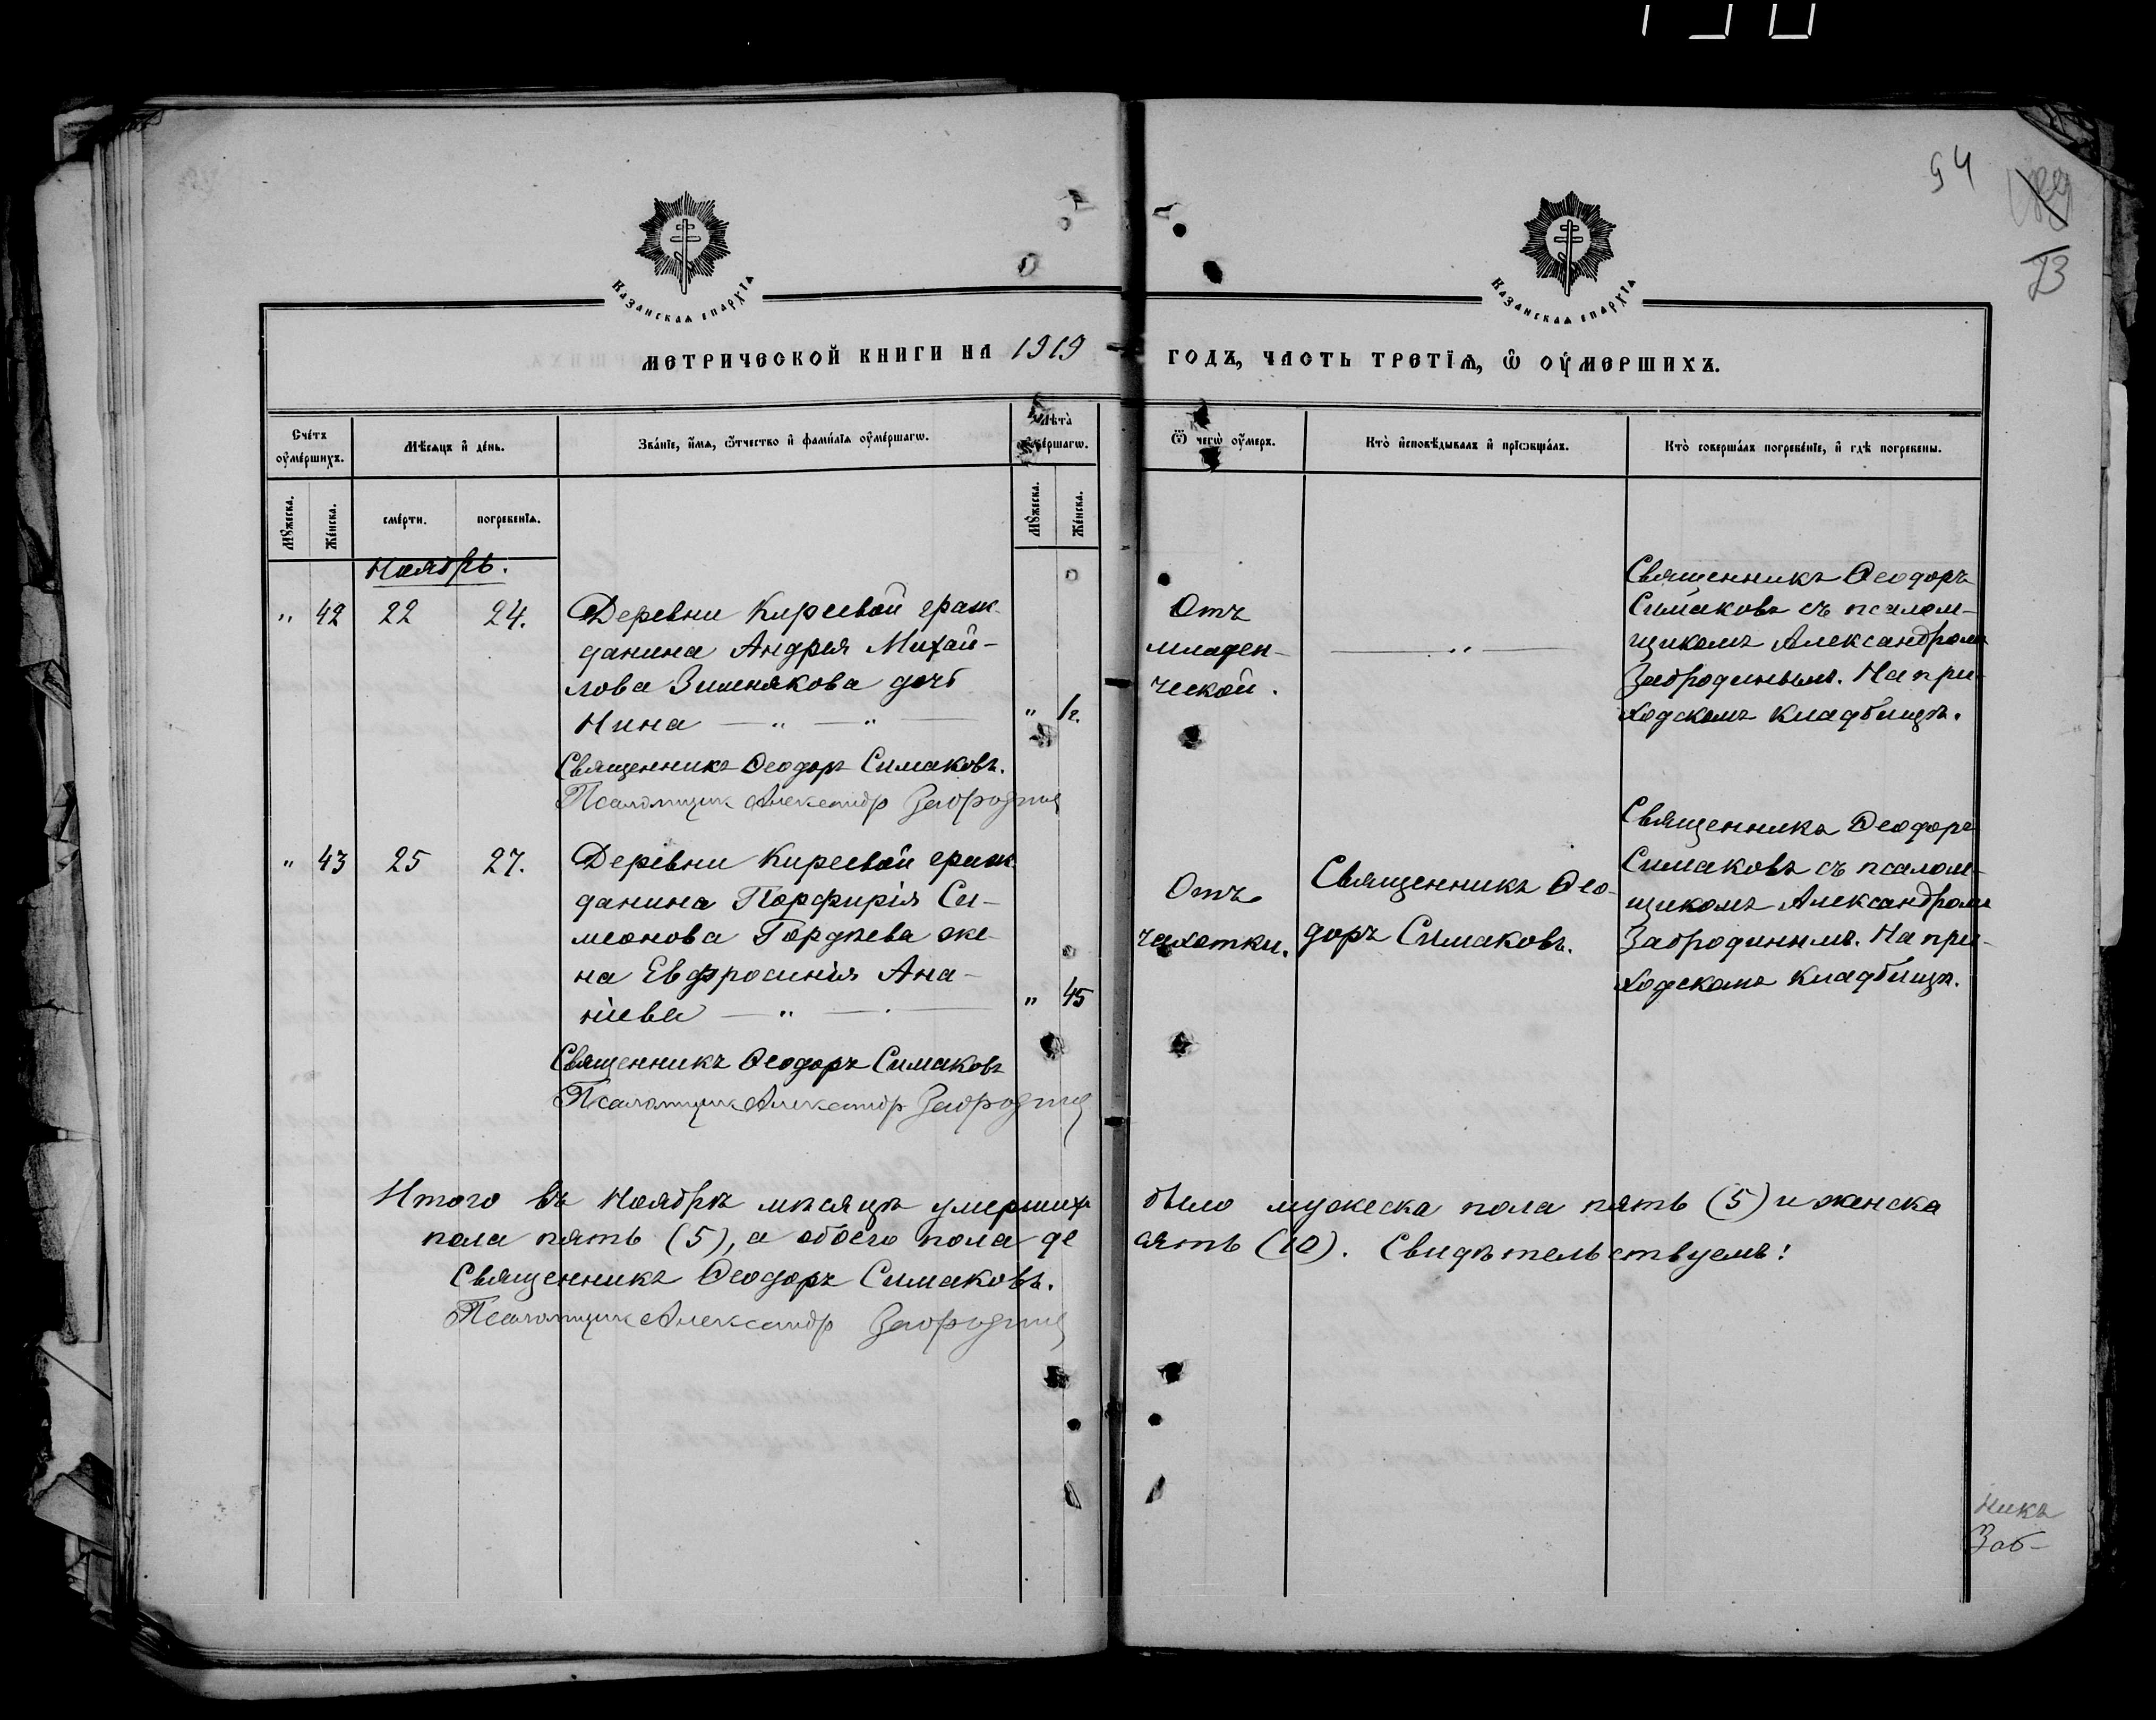 94
73
КАЗАНСКАЯ ЕПАРХІЯ
КАЗАНСКАЯ ЕПАРХІЯ
МЕТРИЧЕСКОЙ КНИГИ НА 1919 ГОДЪ, ЧАСТЬ ТРЕТІѦ, Ѿ ОУМЕРШИХЪ.
Счетъ оумершихъ.
Мѣсяцъ и день.
Званіе, имя, ѿтчество и фамилія оумершагѡ.
Лѣта оумершагѡ.
Ѿ чегѡ оумеръ.
Кто исповѣдывалъ и пріѡбщалъ.
Кто совершалъ погребеніе, и гдѣ погребены.
Мꙋжеска.
Женска.
смерти.
погребенія.
Мꙋжеска.
Женска.
Ноябрь.
" 42 22 24.
Деревни Киреевой граж-
данина Андрея Михай-
лова Зимнякова дочь
Нина — " — " —
" 1г.
Священникъ Ѳеодоръ Симаковъ.
Псаломщик Александр Забродин
Отъ
младен-
ческой.
— " —
Священникъ Ѳеодоръ
Симаковъ съ псалом-
щикомъ Александромъ
Забродинымъ. На при-
ходскомъ кладбищѣ.
" 43 25 27.
Деревни Киреевой граж-
данина Порфирія Си-
меонова Гордѣева же-
на Евфросинія Ана-
ніева — " — · —
" 45
Священникъ Ѳеодоръ Симаковъ
Псаломщик Александр Забродин
Отъ
чахотки.
Священникъ Ѳео-
доръ Симаковъ.
Священникъ Ѳеодоръ
Симаковъ съ псалом-
щикомъ Александромъ
Забродинымъ. На при-
ходскомъ кладбищѣ.
Итого въ Ноябрѣ мѣсяцѣ умершихъ было мужеска пола пять (5) и женска
пола пять (5), а обоего пола де сять (10). Свидѣтельствуемъ:
Священникъ Ѳеодоръ Симаковъ.
Псаломщик Александр Забродин
никъ
Заб-